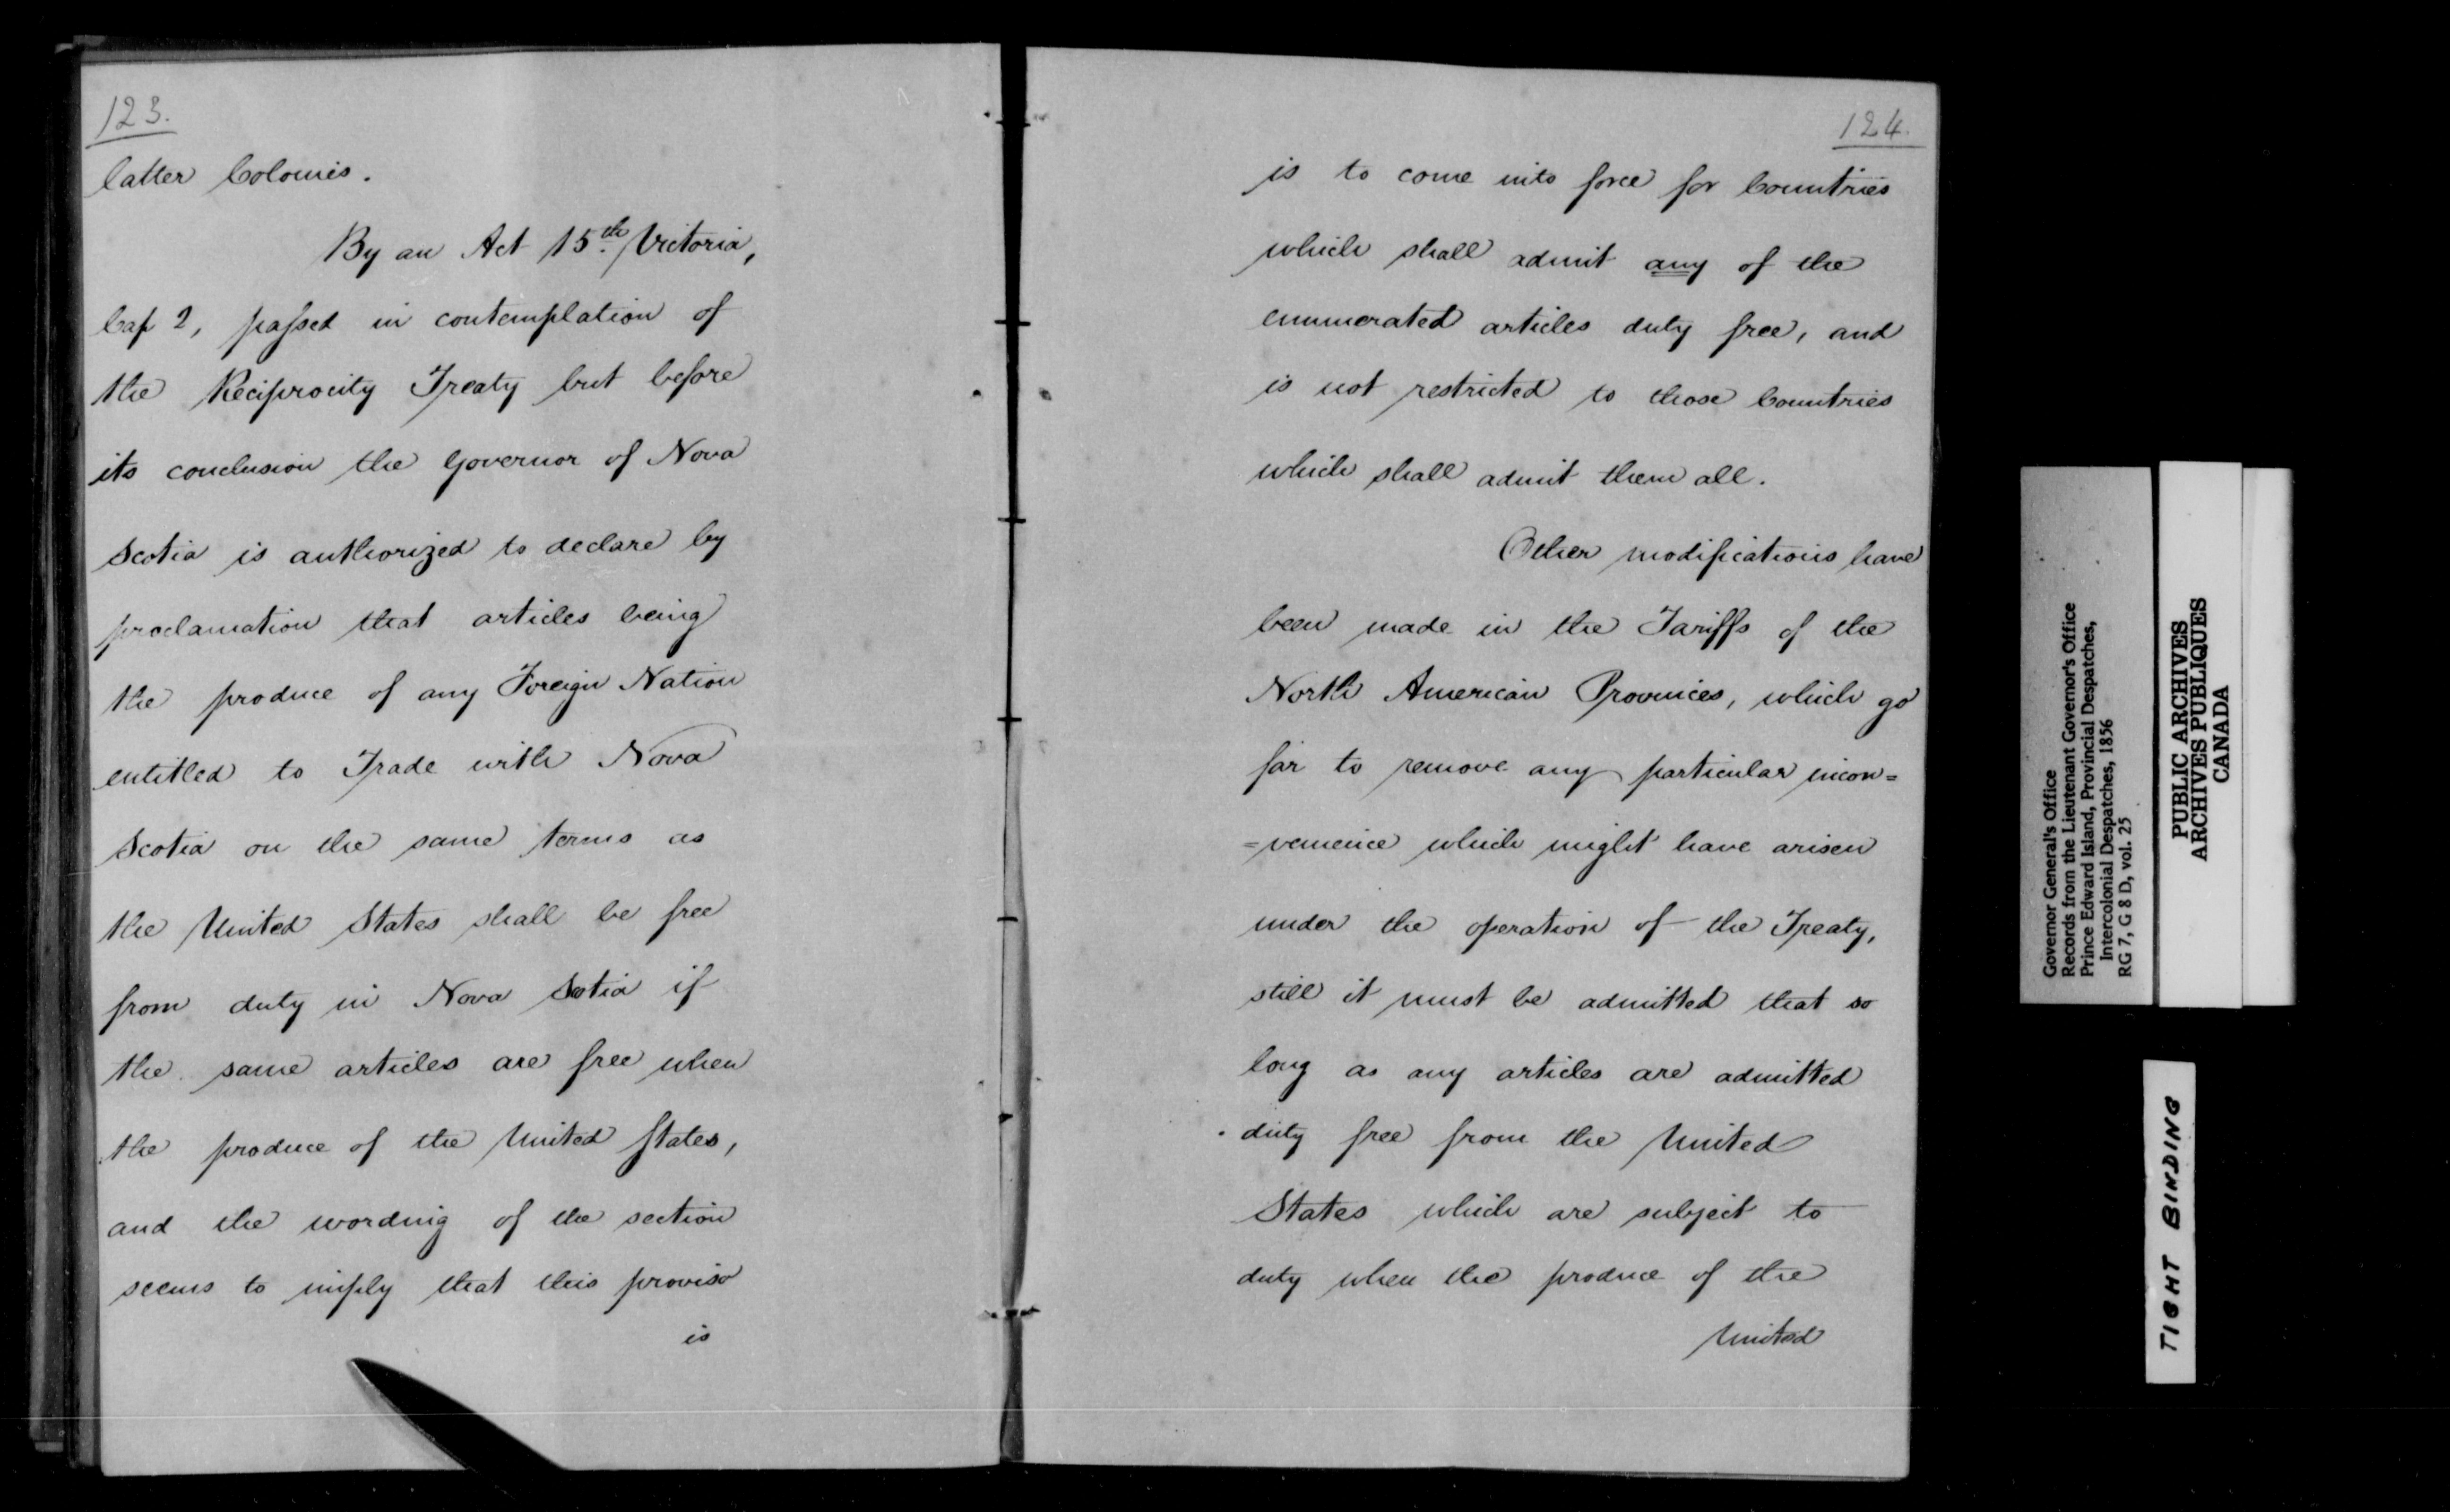 123.
latter Colonies.
By an Act 15th Victoria,
Cap 2, passed in contemplation of
the Reciprocity Treaty but before
its conclusion the Governor of Nova
Scotia is authorized to declare by
proclamation that articles being
the produce of any Foreign Nation
entitled to Trade with Nova
Scotia on the same terms as
the United States shall be free
from duty in Nova Scotia if
the same articles are free when
the produce of the United States,
and the wording of the section
seems to imply that this proviso
is
124.
is to come into force for Countries
which shall admit any of the
enumerated articles duty free, and
is not restricted to those Countries
which shall admit them all.
Other modifications have
been made in the Tariffs of the
North American Provinces, which go
far to remove any particular incon=
=venience which might have arisen
under the operation of the Treaty,
still it must be admitted that so
long as any articles are admitted
duty free from the United
States which are subject to
duty when the produce of the
United
Governor General's Office
Records from the Lieutenant Governor's Office
Prince Edward Island, Provincial Despatches,
Intercolonial Despatches, 1856
RG 7, G 8 D, vol. 25
PUBLIC ARCHIVES
ARCHIVES PUBLIQUES
CANADA
TIGHT BINDING